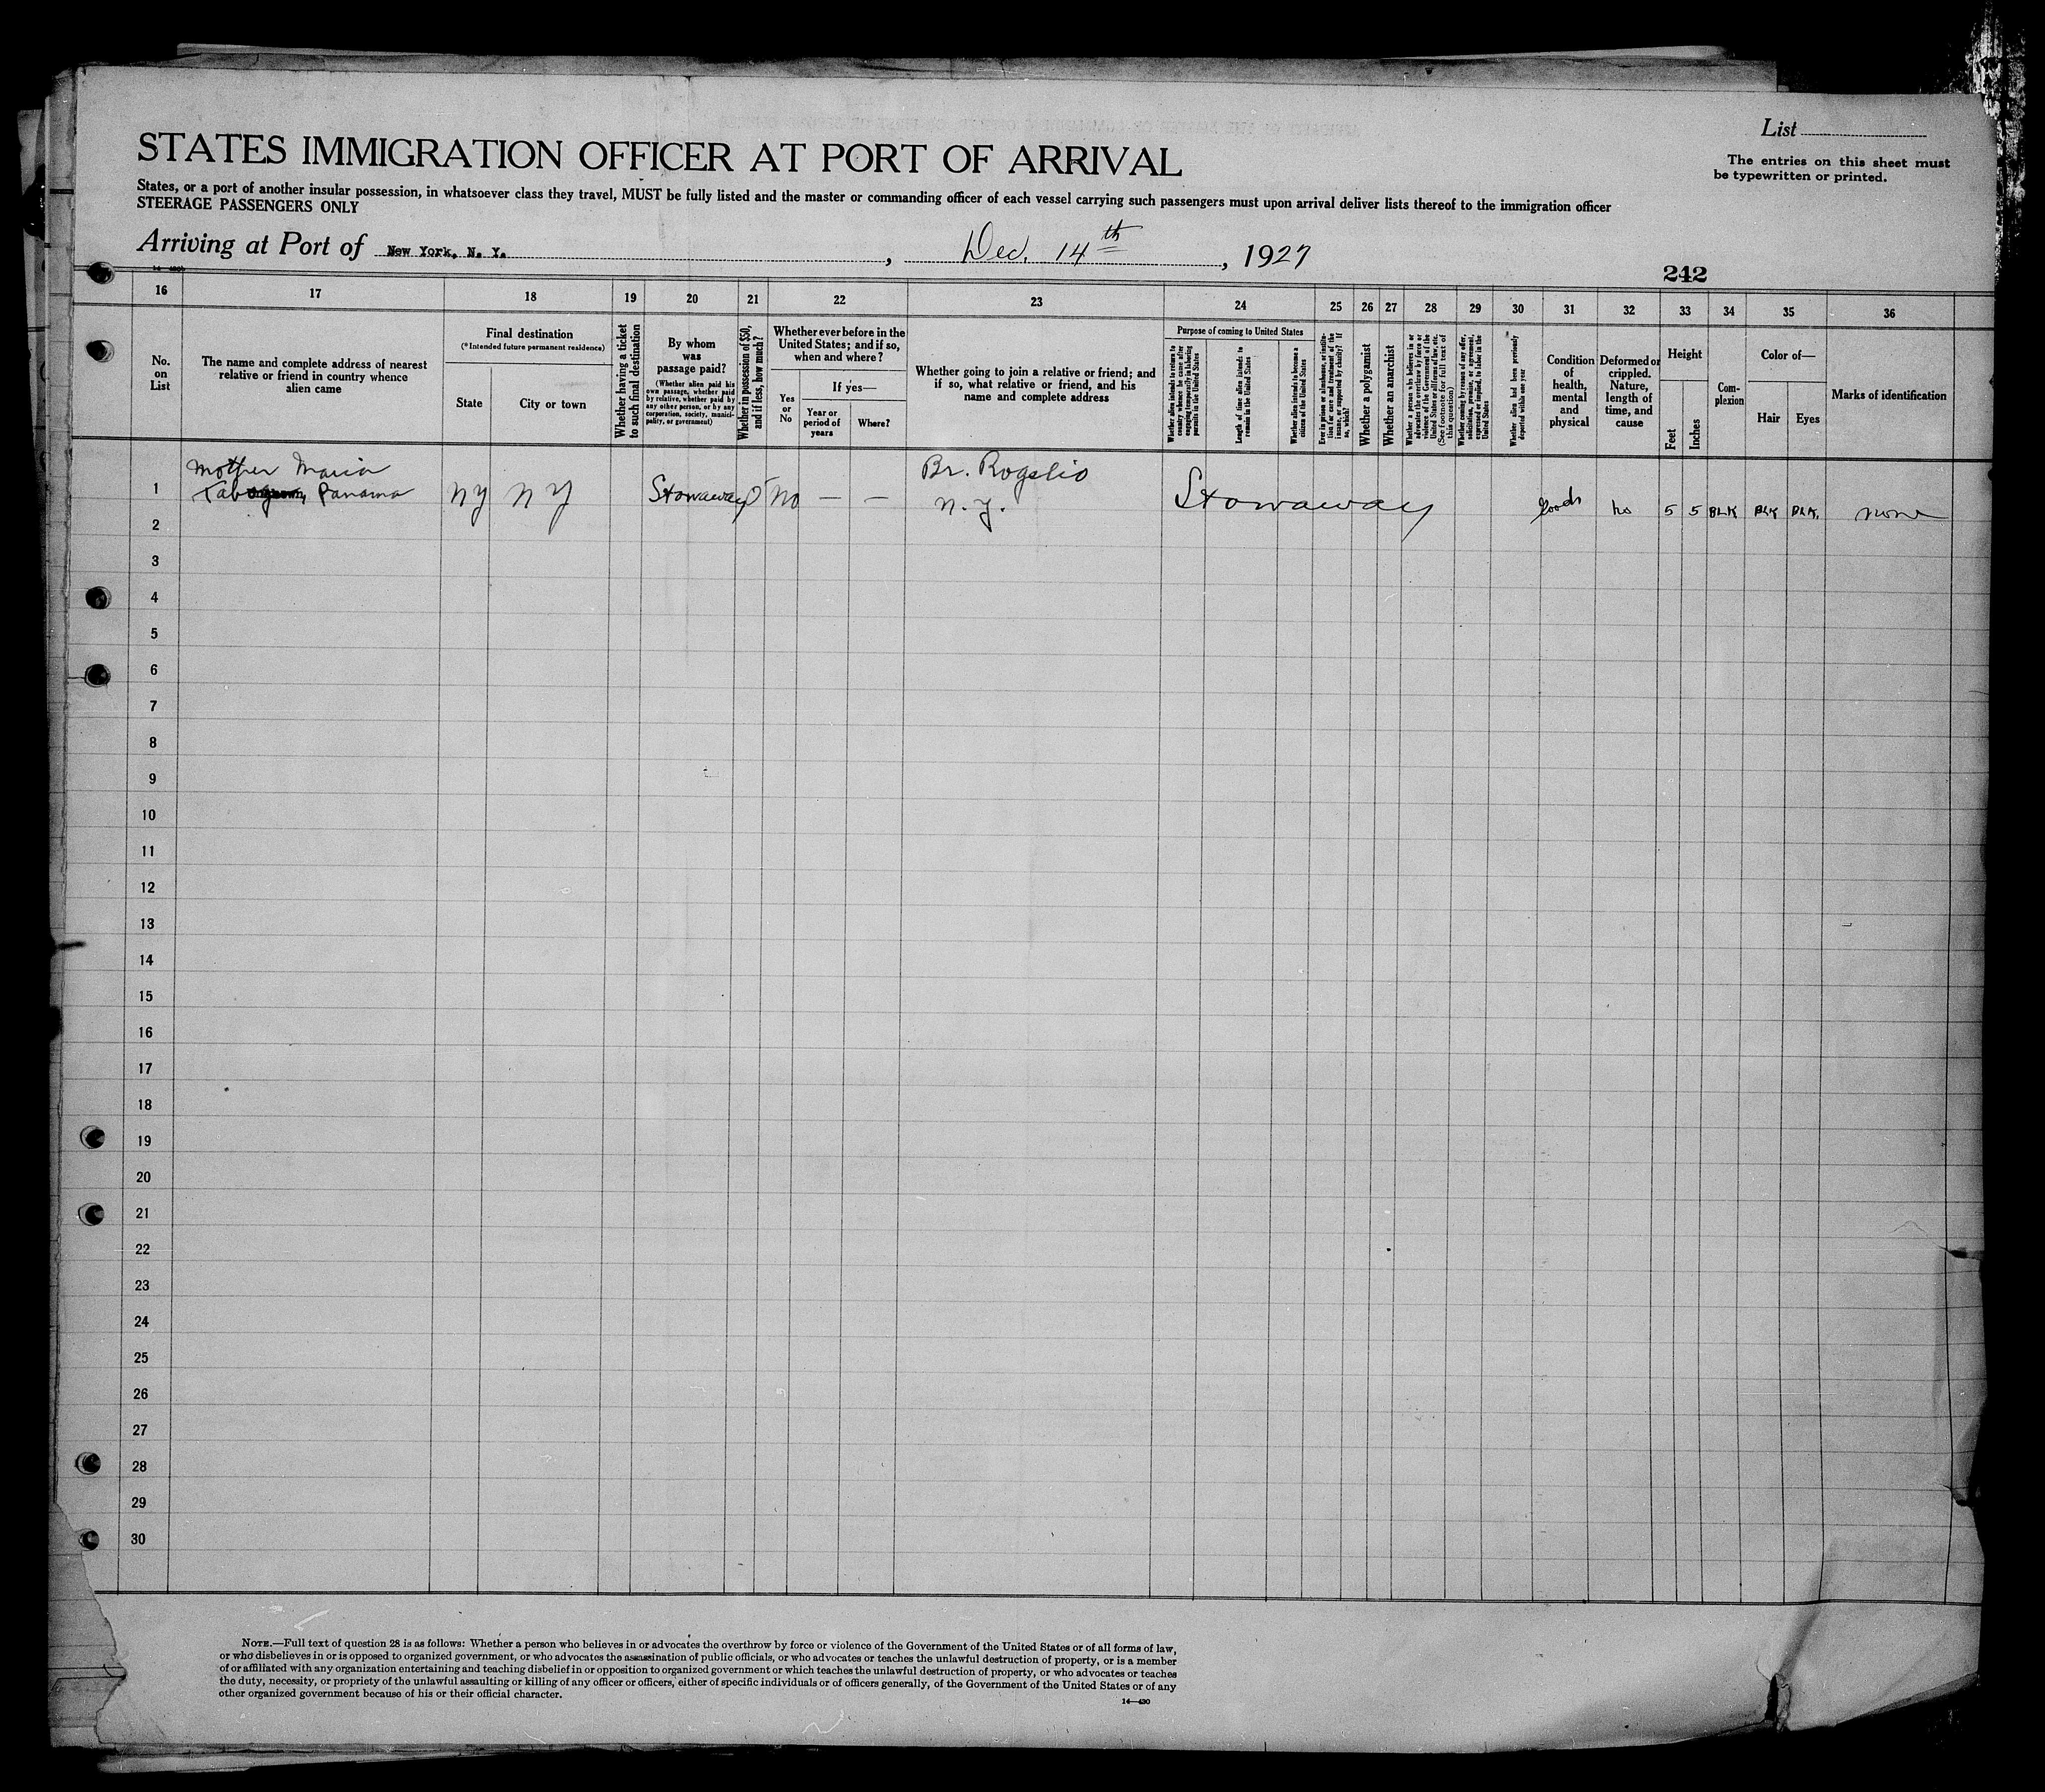 List
The entries on this sheet must
be typewritten or printed.
STATES IMMIGRATION OFFICER AT PORT OF ARRIVAL
States, or a port of another insular possession, in whatsoever class they travel, MUST be fully listed and the master or commanding officer of each vessel carrying such passengers must upon arrival deliver lists thereof to the immigration officer
STEERAGE PASSENGERS ONLY
Arriving at Port of New York, N. Y. , Dec. 14th , 1927
242
16 17 18 19 20 21 22 23 24 25 26 27 28 29 30 31 32 33 34 35 36
No.
on
List
The name and complete address of nearest
relative or friend in country whence
alien came
Final destination
(*Intended future permanent residence)
State
City or town
Whether having a ticket
to such final destination
By whom
was
passage paid?
(Whether alien paid his
own passage, whether paid
by relative, whether paid by
any other person, or by any
corporation, society, munici-
pality, or government)
Whether in possession of $50,
and if less, how much?
Whether ever before in the
United States; and if so,
when and where?
Yes
or
No
If yes—
Year or
period of
years
Where?
Whether going to join a relative or friend; and
if so, what relative or friend, and his
name and complete address
Purpose of coming to United States
Whether alien intends to return to
country whence he came after
engaging temporarily in laboring
pursuits in the United States
Length of time alien intends to
remain in the United States
Whether alien intends to become a
citizen of the United States
Ever in prison or almshouse, or institu-
tion for care and treatment of the
insane, or supported by charity? If
so, which?
Whether a polygamist
Whether an anarchist
Whether a person who believes in or
advocates the overthrow by force or
violence of the Government of the
United States or all forms of law, etc.
(See footnote for full text of
this question)
Whether coming by reason of any offer,
solicitation, promise, or agreement,
expressed or implied, to labor in the
United States
Whether alien had been previously
deported within one year
Condition
of
health,
mental
and
physical
Deformed or
crippled.
Nature,
length of
time, and
cause
Height
Feet
Inches
Com-
plexion
Color of—
Hair
Eyes
Marks of identification
Mother Maria
Panama
NY NY Stowaway No — —
Br. Rogelio
N.Y.
Stowaway
Good no 5 5 BLK BLK BLK. none
1
2
3
4
5
6
7
8
9
10
11
12
13
14
15
16
17
18
19
20
21
22
23
24
25
26
27
28
29
30
NOTE.—Full text of question 28 is as follows: Whether a person who believes in or advocates the overthrow by force or violence of the Government of the United States or of all forms of law,
or who disbelieves in or is opposed to organized government, or who advocates the assassination of public officials, or who advocates or teaches the unlawful destruction of property, or is a member
of or affiliated with any organization entertaining and teaching disbelief in or opposition to organized government or which teaches the unlawful destruction of property, or who advocates or teaches
the duty, necessity, or propriety of the unlawful assaulting or killing of any officer or officers, either of specific individuals or of officers generally, of the Government of the United States or of any
other organized government because of his or their official character.
14—430